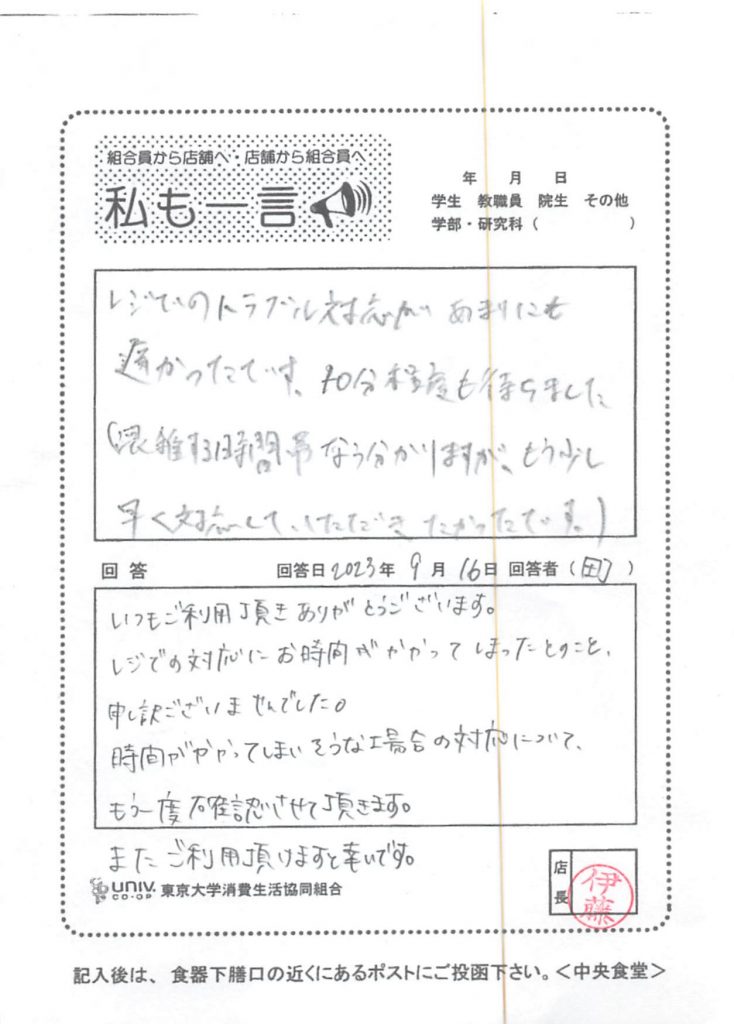 組合員から店舗へ・店舗から組合員へ
私も一言
年 月 日
学生 教職員 院生 その他
学部・研究科（ ）
レジでのトラブル対応が あまりにも
遅かったです。10分程度も待ちました
(混雑する時間帯なら分かりますが、もう少し
早く対応していただきたかったです。)
回答 回答日2023年 9月 16日 回答者（町）
いつもご利用頂きありがとうございます。
レジでの対応にお時間がかかってしまったとのこと、
申し訳ございませんでした。
時間がかかってしまいそうな場合の対応について、
もう一度確認させて頂きます。
またご利用頂けますと幸いです。
店長
伊藤
UNIV. CO-OP 東京大学消費生活協同組合
記入後は、食器下膳口の近くにあるポストにご投函下さい。＜中央食堂＞